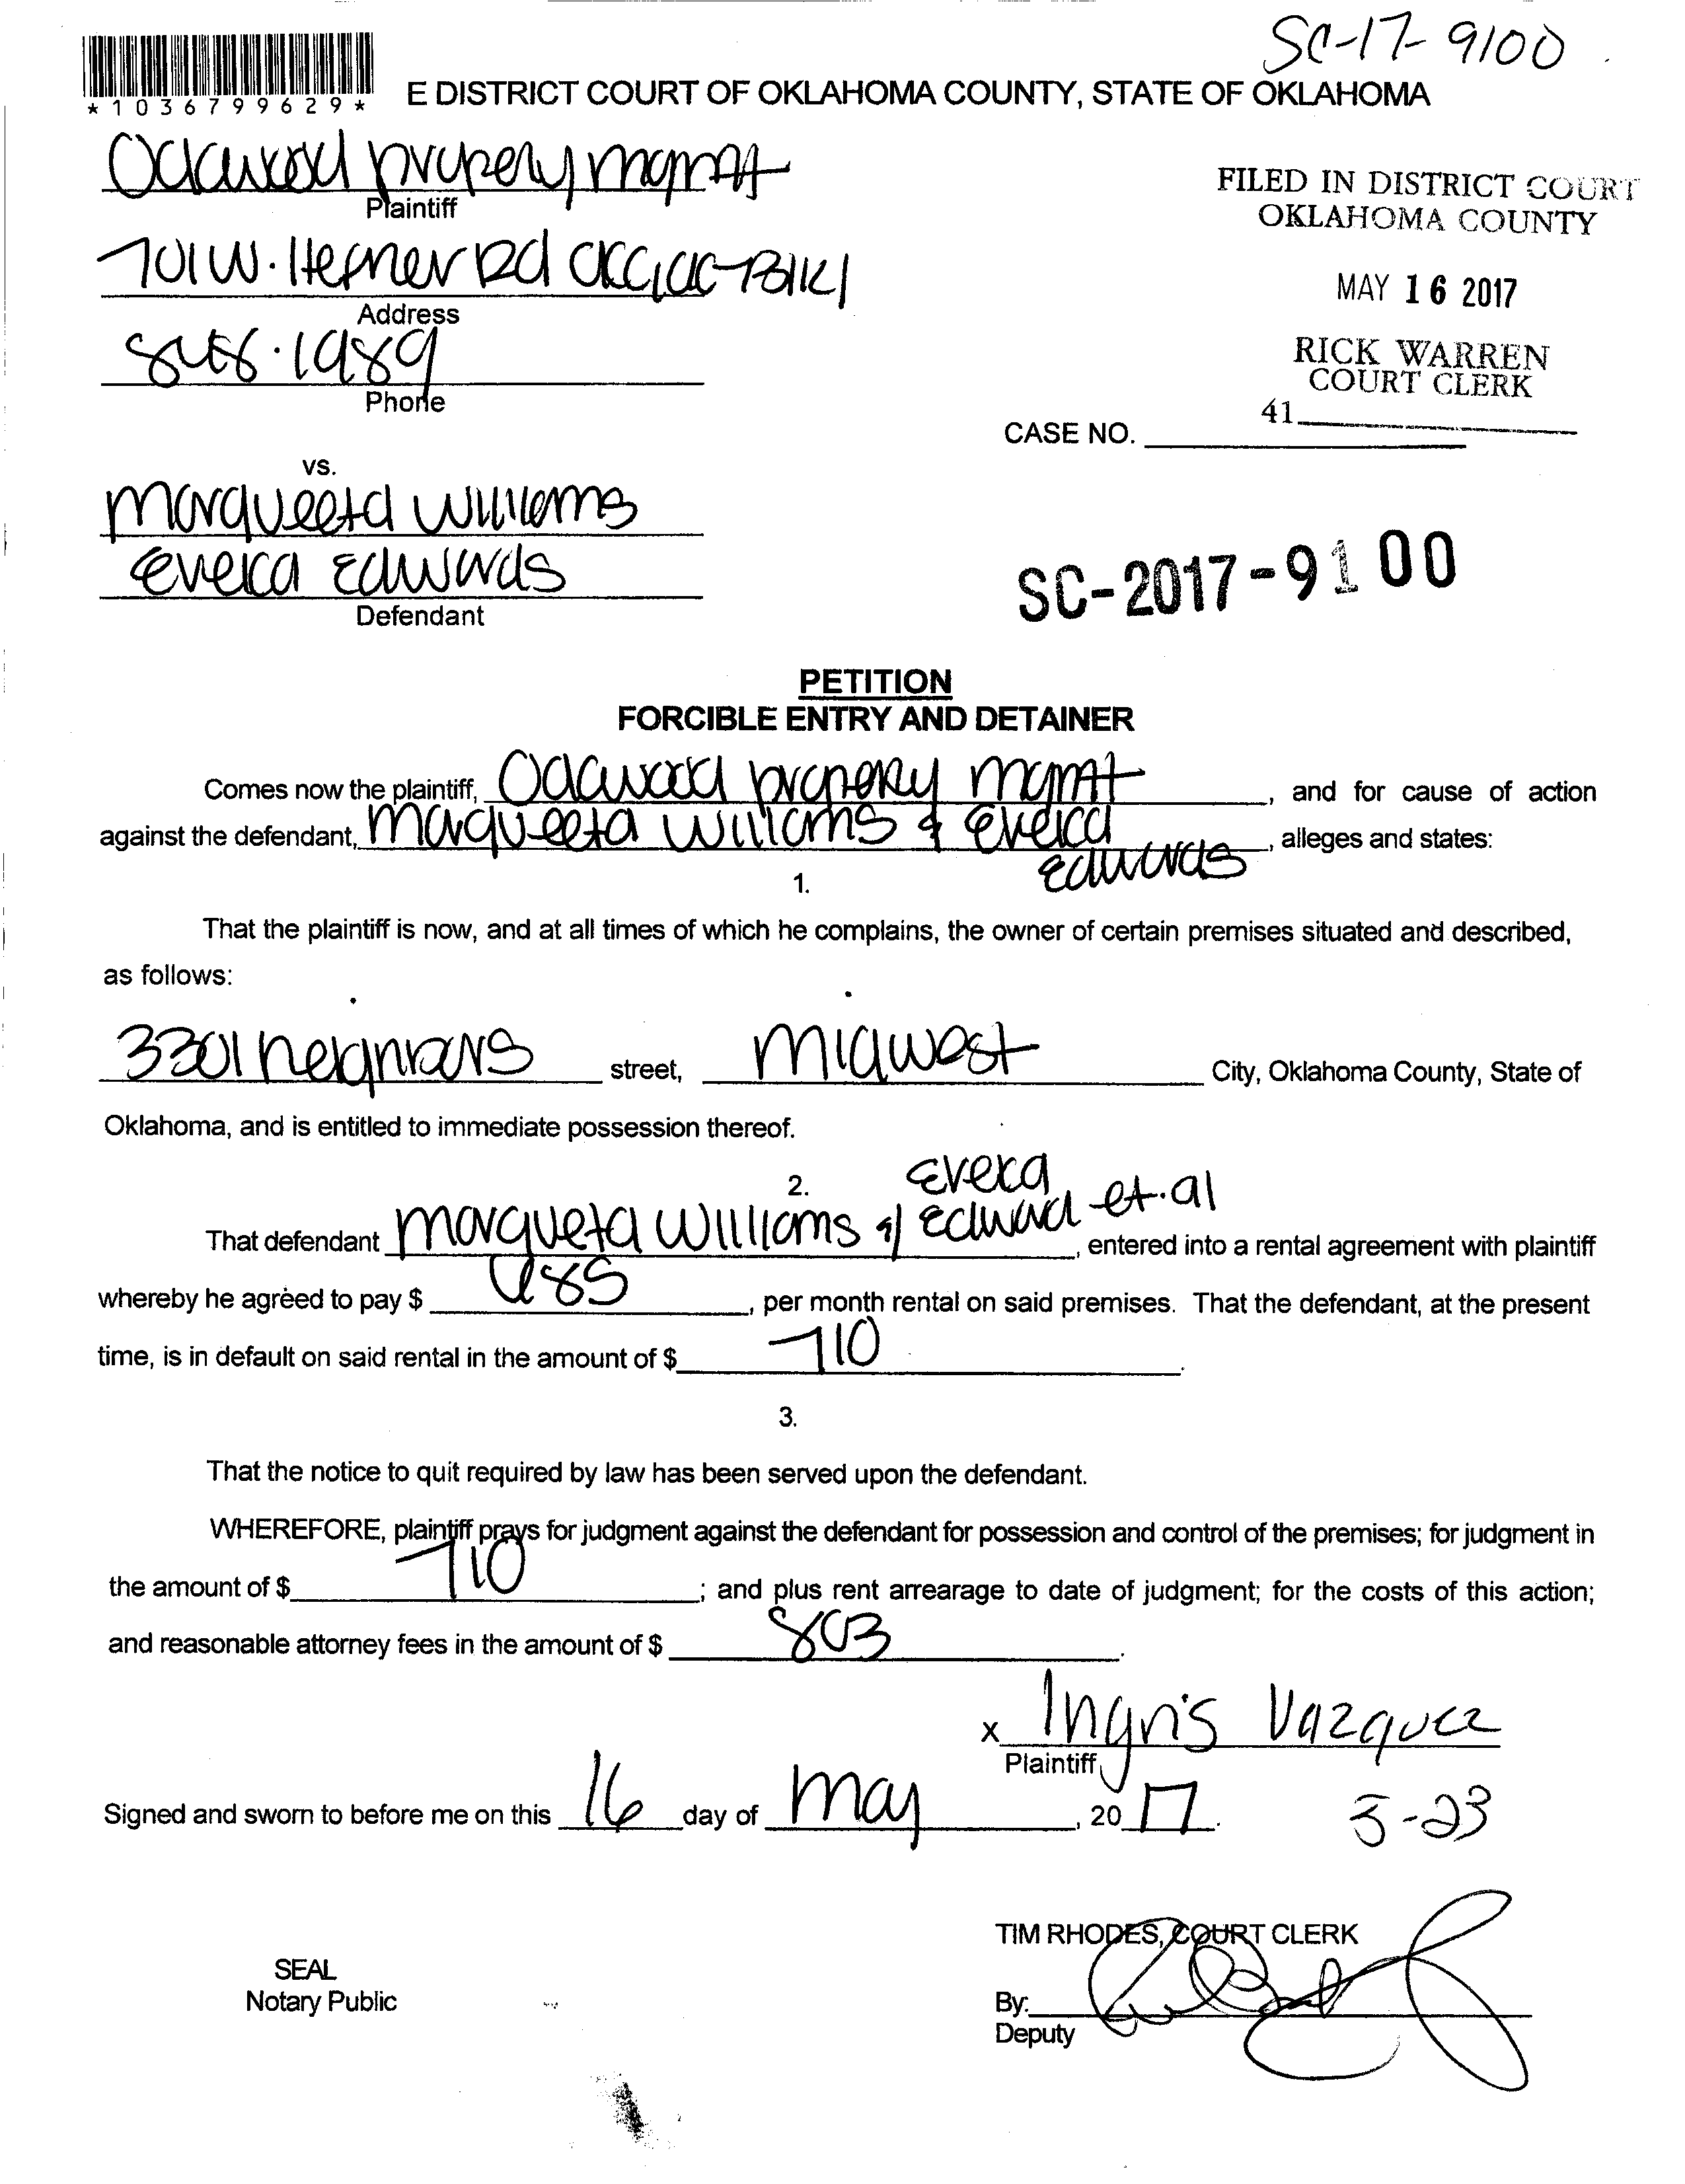 SC-17-9100
*1036799629*
E DISTRICT COURT OF OKLAHOMA COUNTY, STATE OF OKLAHOMA
mgmt
Plaintiff
FILED IN DISTRICT COURT
OKLAHOMA COUNTY
701 W. Hefner Rd
Address
MAY 16 2017
1989
Phone
RICK WARREN
COURT CLERK
41
CASE NO.
vs.
Marqueeta Williams
Evelca Edwards
Defendant
SC-2017-9100
PETITION
FORCIBLE ENTRY AND DETAINER
Comes now the plaintiff, mgmt, and for cause of action
against the defendant, Marqueeta Williams & Evelca
Edwards, alleges and states:
1.
That the plaintiff is now, and at all times of which he complains, the owner of certain premises situated and described,
as follows:
3301 street, Midwest City, Oklahoma County, State of
Oklahoma, and is entitled to immediate possession thereof.
2.
That defendant Marqueta Williams & Edward et.al, entered into a rental agreement with plaintiff
whereby he agreed to pay $ 685, per month rental on said premises. That the defendant, at the present
time, is in default on said rental in the amount of $ 710.
3.
That the notice to quit required by law has been served upon the defendant.
WHEREFORE, plaintiff prays for judgment against the defendant for possession and control of the premises; for judgment in
the amount of $ 710; and plus rent arrearage to date of judgment; for the costs of this action;
and reasonable attorney fees in the amount of $ 803.
x Ingris Vazquez
Plaintiff
Signed and sworn to before me on this 16 day of May, 2017.
5-23
TIM RHODES, COURT CLERK
SEAL
Notary Public
By:
Deputy